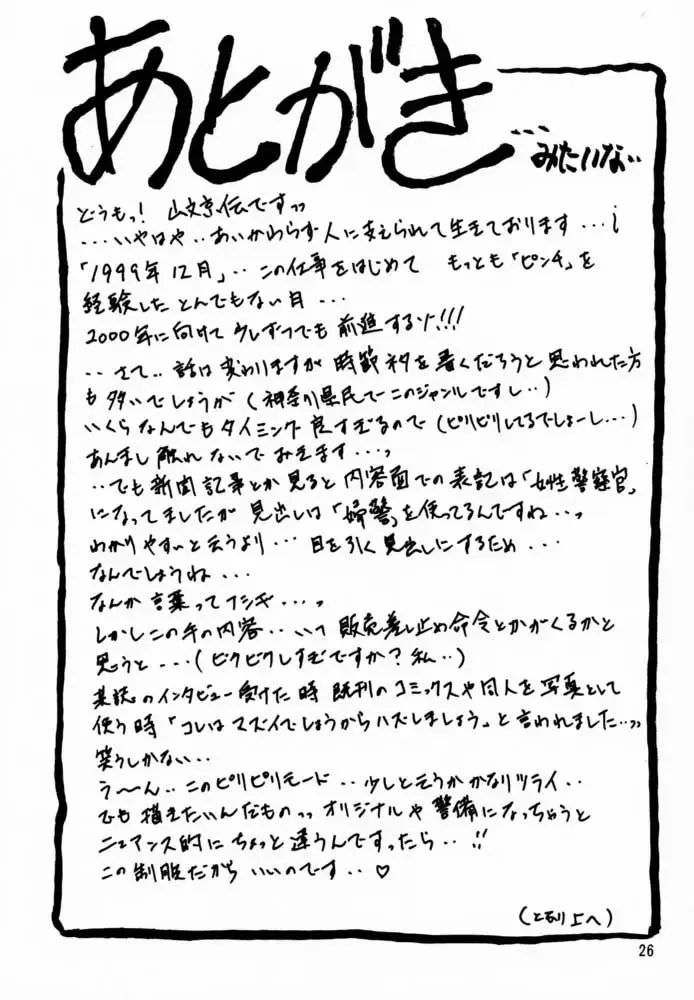 あとがき
…みたいな…
どうもっ! 山文京伝ですっっ
・・・いやはや・・あいかわらず人に支えられて生きております・・・i
「1999年12月」・・この仕事をはじめて もっとも「ピンチ」を
経験したとんでもない月・・・
2000年に向けて少しずつでも前進するゾ!!!
・・さて・・話は変わりますが時節ネタを書くだろうと思われた方
も多いでしょうが(神奈川県民でこのジャンルですし・・)
いくらなんでもタイミング良すぎるので(ピリピリしてるでしょーし・・・)
あんまし触れないでおきます・・・っ
・・でも新聞記事とか見ると内容面での表記は「女性警察官」
になってましたが見出しは「婦警」を使ってるんですね・・っ
わかりやすいと云うより・・・目を引く見出しにするため・・・
なんでしょうね・・・
なんか言葉ってフシギ・・・っ
しかしこの手の内容・・いつ販売差し止め命令とかがくるかと
思うと・・・(ビクビクしすぎですか?私・・)
某誌のインタビュー受けた時既刊のコミックスや同人を写真として
使う時「コレはマズイでしょうからハズしましょう」と言われました・・っっ
笑うしかない・・
う〜ん・・このピリピリモード・・少しと云うかかなりツライ・・
でも描きたいんだものっっオリジナルや警備になっちゃうと
ニュアンス的にちょっと違うんですったら・・!!
この制服だから いいのです・・♡
(となり上へ)
26